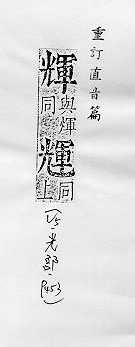 重訂直音篇
輝與煇同輝同上
(巧.光部.P453)